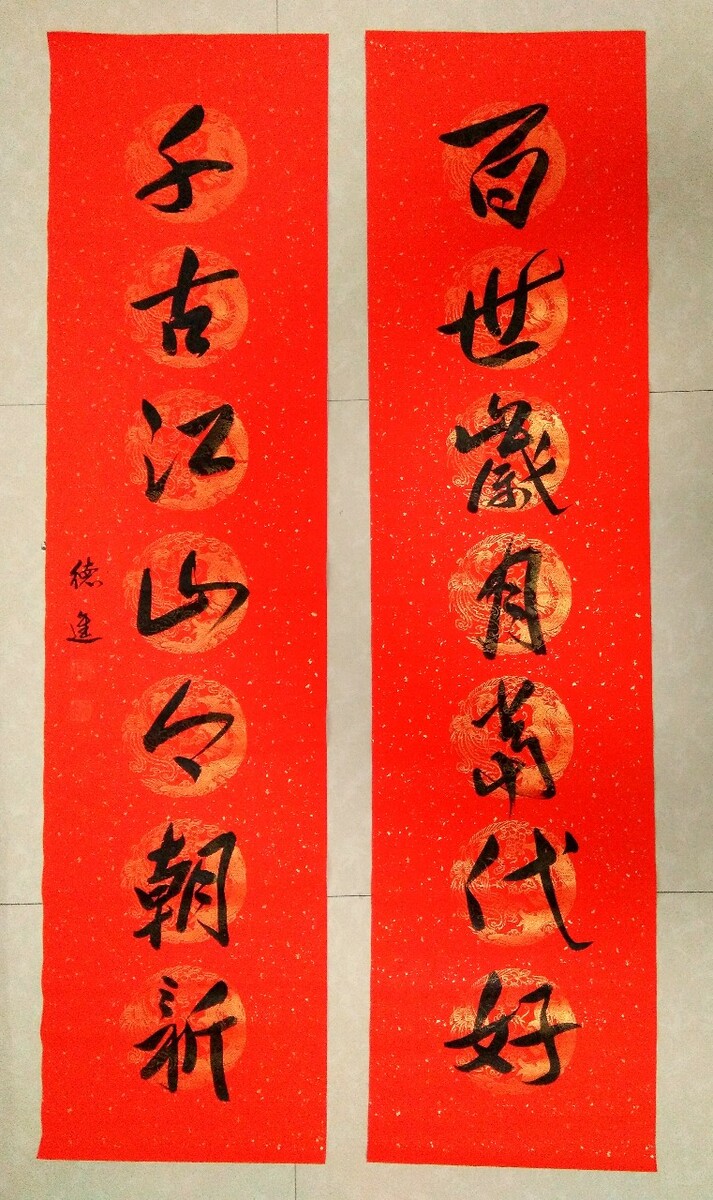 百世歲月萬代好
千古江山今朝新
德進